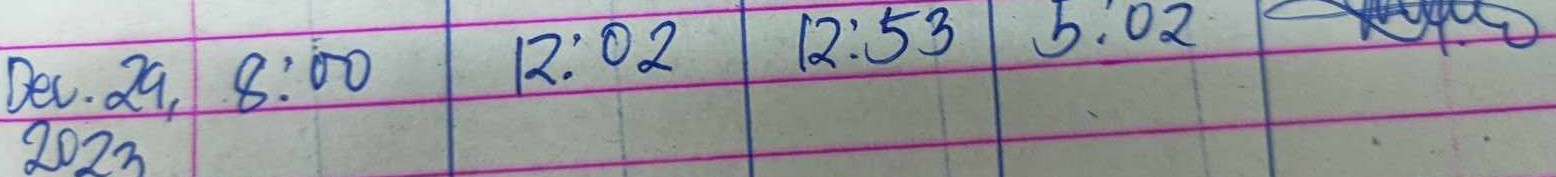 Dec. 29, 8:00 12:02 12:53 5:02
2023